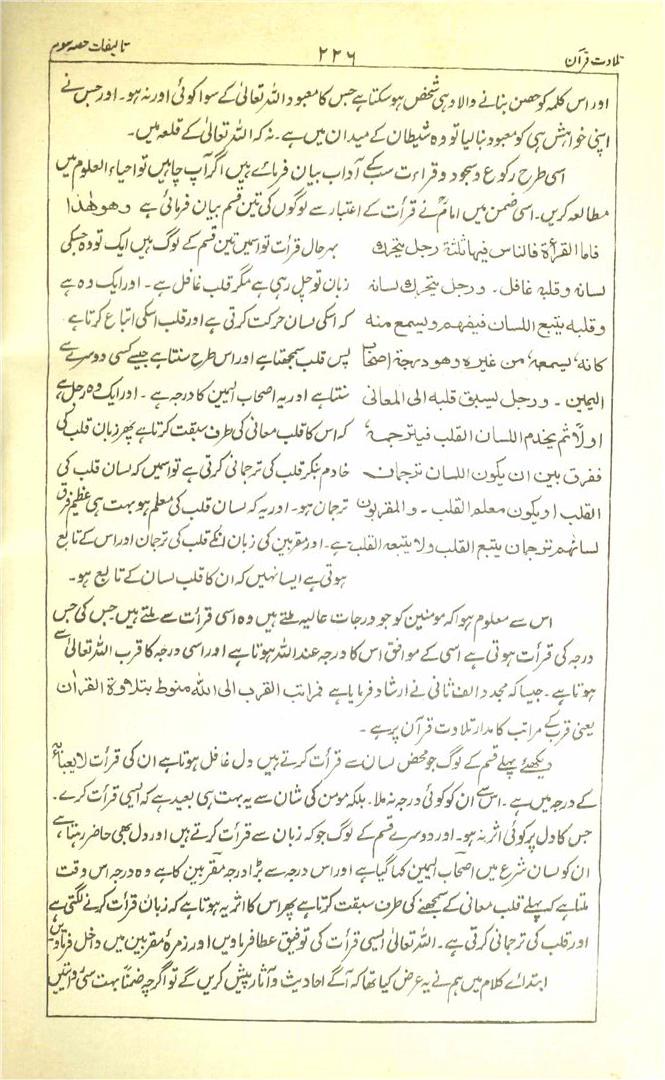 تلاوت قرآن
۲۲۶
تالیفات حصہ سوم
اور اس کلمہ کو حصن بنانے والا وہی شخص ہو سکتا ہے جس کا معبود اللہ تعالیٰ کے سوا کوئی اور نہ ہو۔ اور جس نے
اپنی خواہش ہی کو معبود بنا لیا تو وہ شیطان کے میدان میں ہے۔ نہ کہ اللہ تعالیٰ کے قلعہ میں۔
اسی طرح رکوع و سجود و قراءت سب کے آداب بیان فرمائے ہیں اگر آپ چاہیں تو احیاء العلوم میں
مطالعہ کریں۔ اسی ضمن میں امامؒ نے قرأت کے اعتبار سے لوگوں کی تین قسم بیان فرمائی ہے وھو ھٰذا
فاما القرأۃ فالناس فیہا ثلثۃ رجل یتحرک
لسانہ وقلبہ غافل۔ ورجل یتحرک لسانہ
وقلبہ یتبع اللسان فیفہم ویسمع منہ
کانہ، یسمعہ، من غیرہ وھو درجۃ اصحاب
الیمین۔ ورجل یسبق قلبہ الی المعانی
اولاً ثم یخدم اللسان القلب فیترجمہ،
ففرق بین ان یکون اللسان ترجمان
القلب او یکون معلم القلب۔ والمقربون
لسانہم ترجمان یتبع القلب ولا یتبعہ القلب
بہرحال قرأت تو اسمیں تین قسم کے لوگ ہیں ایک تو وہ جسکی
زبان تو چل رہی ہے مگر قلب غافل ہے۔ اور ایک وہ ہے
کہ اسکی لسان حرکت کرتی ہے اور قلب اسکی اتباع کرتا ہے
پس قلب سمجھتا ہے اور اس طرح سنتا ہے جیسے کسی دوسرے سے
سنتا ہے اور یہ اصحاب الیمین کا درجہ ہے۔ اور ایک وہ رجل ہے
کہ اس کا قلب معانی کی طرف سبقت کرتا ہے پھر زبان قلب کی
خادم بنکر قلب کی ترجمانی کرتی ہے تو اسمیں کہ لسان قلب کی
ترجمان ہو۔ اور یہ کہ لسان قلب کی معلم ہو بہت ہی عظیم فرق
ہے۔ اور مقربین کی زبان انکے قلب کی ترجمان اور اس کے تابع
ہوتی ہے ایسا نہیں کہ ان کا قلب لسان کے تابع ہو۔
اس سے معلوم ہوا کہ مومنین کو جو درجات عالیہ ملتے ہیں وہ اسی قرأت سے ملتے ہیں جس کی جس
درجہ کی قرأت ہوتی ہے اسی کے موافق اس کا درجہ عند اللہ ہوتا ہے اور اسی درجہ کا قرب اللہ تعالیٰ سے
ہوتا ہے۔ جیسا کہ مجدد الف ثانی نے ارشاد فرمایا ہے مراتب القرب الی اللہ منوط بتلاوۃ القراٰن
یعنی قرب کے مراتب کا مدار تلاوت قرآن پر ہے۔
دیکھئے پہلے قسم کے لوگ جو محض لسان سے قرأت کرتے ہیں دل غافل ہوتا ہے ان کی قرأت لا یعبأ بہٖ
کے درجہ میں ہے۔ اس سے ان کو کوئی درجہ نہ ملا۔ بلکہ مومن کی شان سے یہ بہت ہی بعید ہے کہ ایسی قرأت کرے۔
جس کا دل پر کوئی اثر نہ ہو۔ اور دوسرے قسم کے لوگ جو کہ زبان سے قرأت کرتے ہیں اور دل بھی حاضر رہتا ہے،
ان کو لسان شرع میں اصحاب الیمین کہا گیا ہے اور اس درجہ سے بڑا درجہ مقربین کا ہے وہ درجہ اس وقت
ملتا ہے کہ پہلے قلب معانی کے سمجھنے کی طرف سبقت کرتا ہے پھر اس کا اثر یہ ہوتا ہے کہ زبان قرأت کرنے لگتی ہے
اور قلب کی ترجمانی کرتی ہے۔ اللہ تعالیٰ ایسی قرأت کی توفیق عطا فرماویں اور زمرۂ مقربین میں داخل فرماویں
ابتدائے کلام میں ہم نے یہ عرض کیا تھا کہ آگے احادیث و آثار پیش کریں گے تو اگرچہ ضمناً بہت سی روایتیں